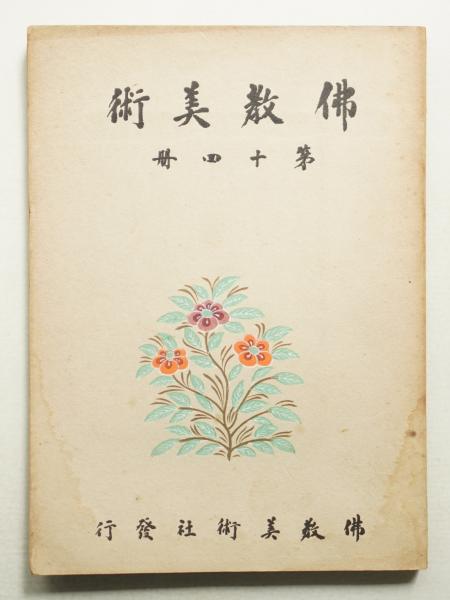 佛教美術
第十四册
佛教美術社發行